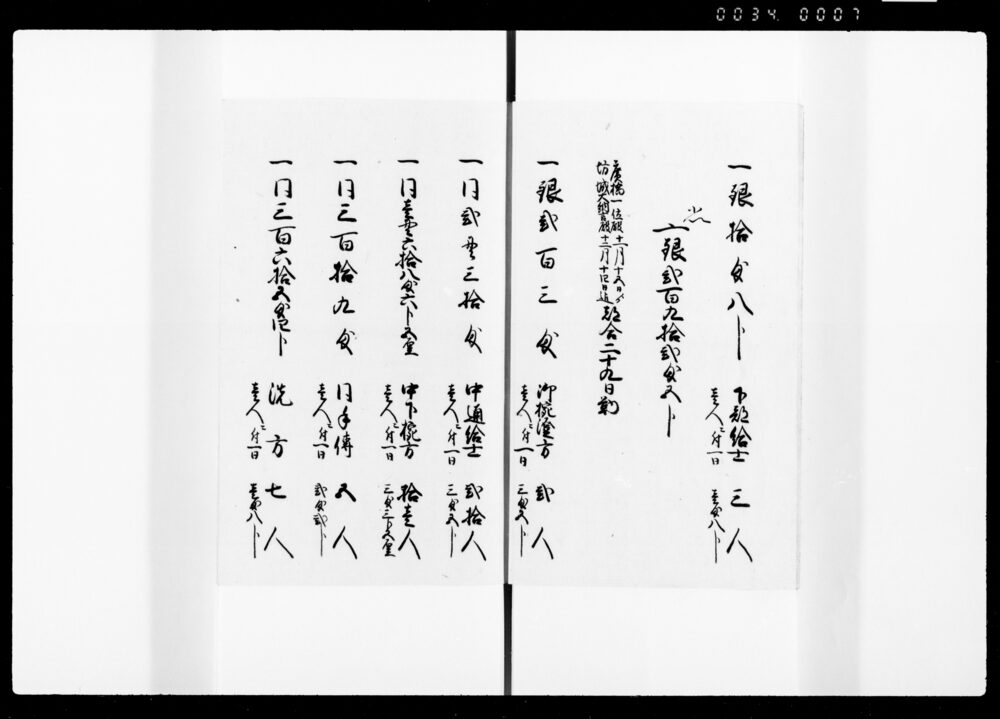 0034. 0007
一銀拾匁八分 下部給士 三人
壱人ニ付一日 壱匁八分
〆銀弐百九拾弐匁五分
廣橋一位殿十一月十五日ゟ
坊城大納言殿十二月十四日迄都合二十九日勤
一銀弐百三匁 御椀塗方 弐人
壱人ニ付一日 三匁五分
一同弐貫三拾匁 中通給士 弐拾人
壱人ニ付一日 三匁五分
一同壱貫六拾八匁六分五厘 中下椀方 拾壱人
壱人ニ付一日 三匁三分五厘
一同三百拾九匁 同手傳 五人
壱人ニ付一日 弐匁弐分
一同三百六拾五匁四分 洗方 七人
壱人ニ付一日 壱匁八分